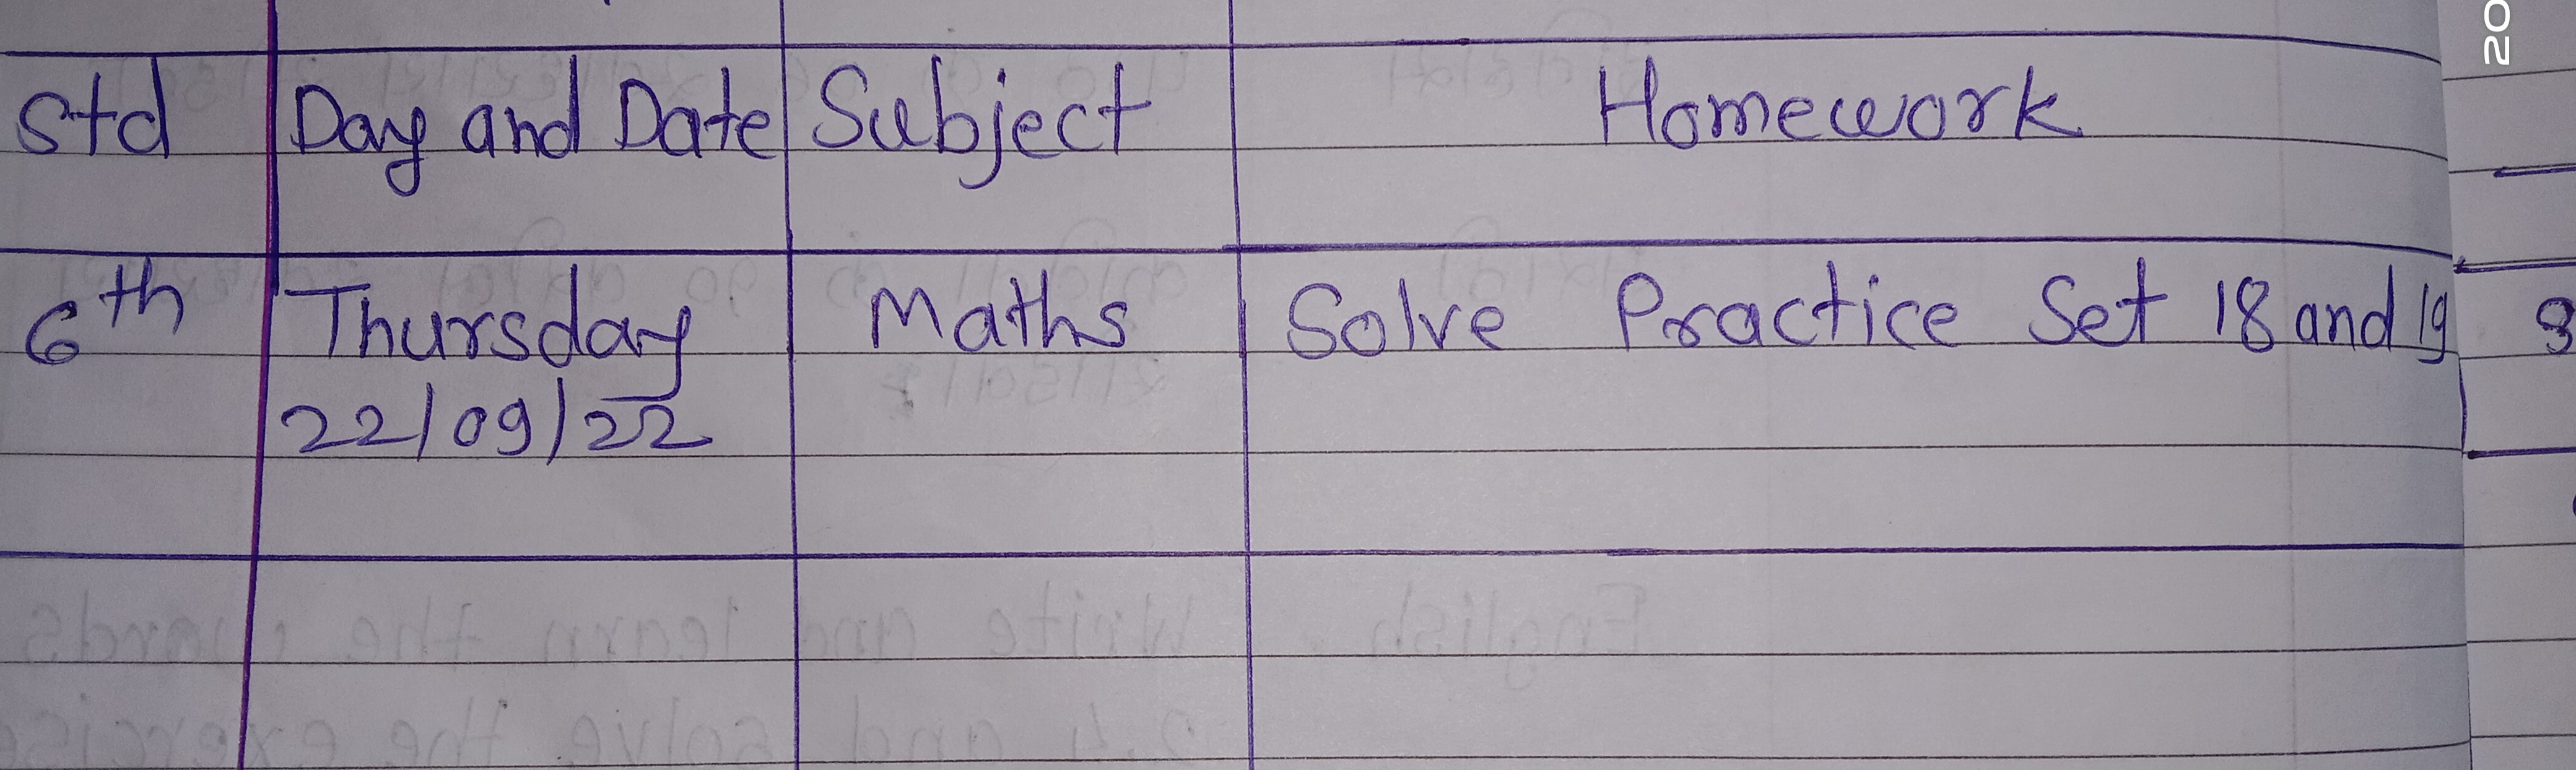 Std Day and Date Subject Homework
6th Thursday Maths Solve Practice Set 18 and 19
22/09/22